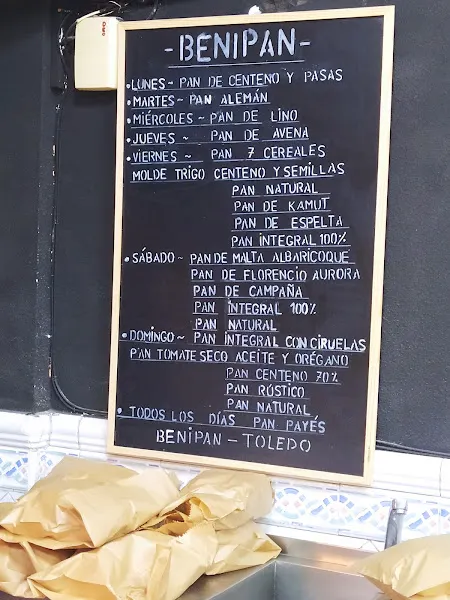 -BENIPAN-
• LUNES - PAN DE CENTENO Y PASAS
• MARTES ~ PAN ALEMÁN
• MIÉRCOLES ~ PAN DE LINO
• JUEVES ~ PAN DE AVENA
• VIERNES ~ PAN 7 CEREALES
MOLDE TRIGO CENTENO Y SEMILLAS
PAN NATURAL
PAN DE KAMUT
PAN DE ESPELTA
PAN INTEGRAL 100%
• SÁBADO ~ PAN DE MALTA ALBARICOQUE
PAN DE FLORENCIO AURORA
PAN DE CAMPAÑA
PAN INTEGRAL 100%
PAN NATURAL
• DOMINGO ~ PAN INTEGRAL CON CIRUELAS
PAN TOMATE SECO ACEITE Y ORÉGANO
PAN CENTENO 70%
PAN RÚSTICO
PAN NATURAL
• TODOS LOS DÍAS PAN PAYÉS
BENIPAN - TOLEDO